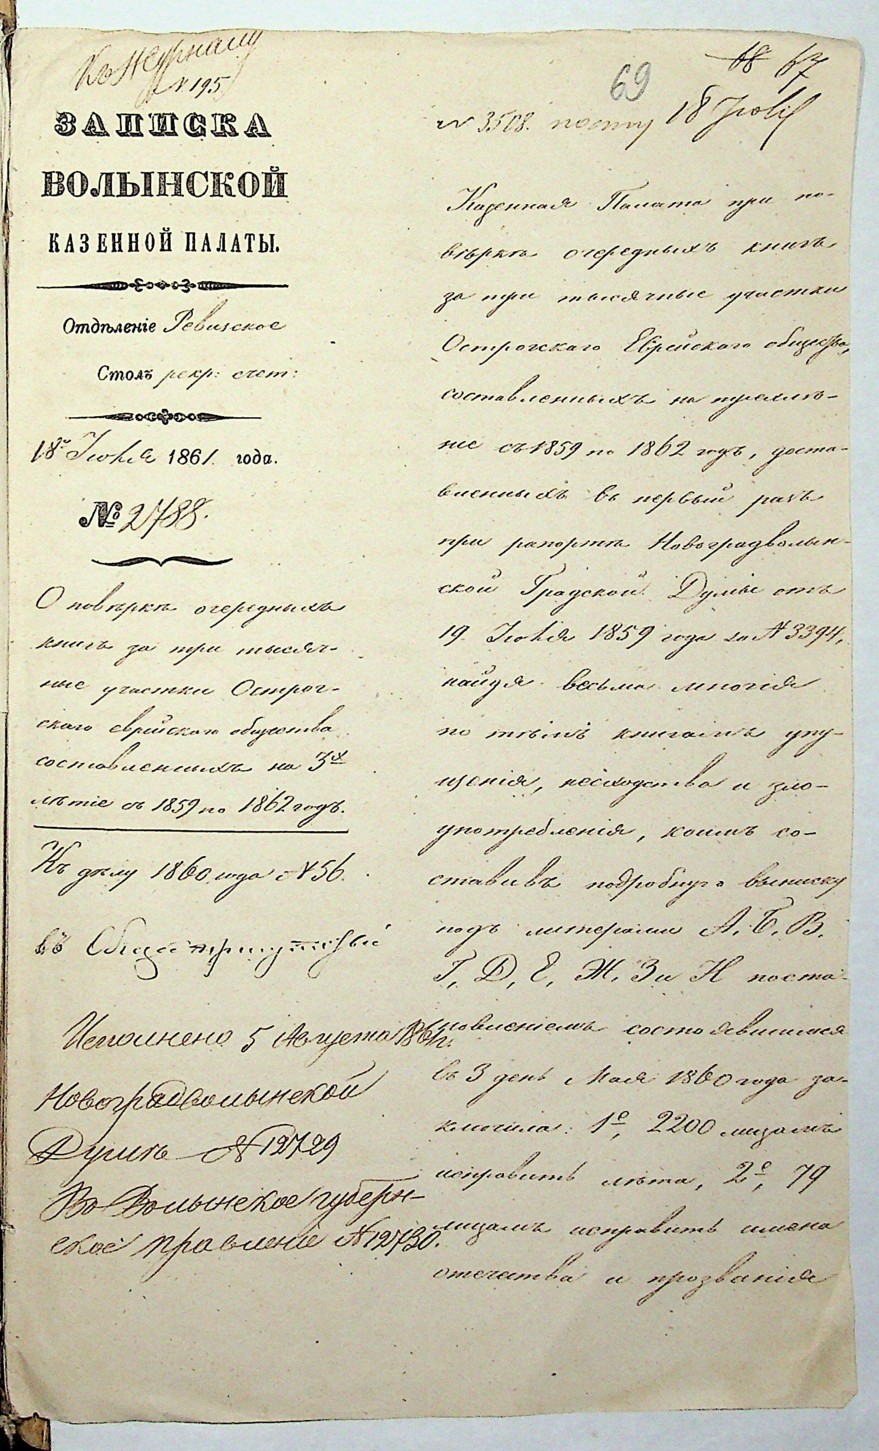 Къ Журналу
№ 195
ЗАПИСКА
ВОЛЫНСКОЙ
КАЗЕННОЙ ПАЛАТЫ.
Отдѣленіе Ревизское
Столъ рекр: счет:
18го Іюля 1861 года.
№ 2788.
О повѣркѣ очередныхъ
книгъ за три тысяч-
ные участки Острог-
скаго еврейскаго общества
составленныхъ на 3х
лѣтіе съ 1859 по 1862 годъ.
Къ дѣлу 1860 года № 56.
въ Общее присутствіе
Исполнено 5 Августа
Новоградволынской
Думѣ № 12729
Во Волынское губерн-
ское правленіе № 12730.
68 67
69
№ 3508. 18 Іюля
Казенная Палата при по-
вѣркѣ очередныхъ книгъ
за три тысячные участки
Острогскаго Еврейскаго общества,
составленныхъ на трехлѣ-
тіе съ 1859 по 1862 годъ, доста-
вленныхъ въ первый разъ
при рапортѣ Новоградволын-
ской Градской Думы отъ
19 Іюля 1859 года за № 3394,
найдя весьма многія
по тѣмъ книгамъ упу-
щенія, несходства и зло-
употребленія, коимъ со-
ставивъ подробную выписку
подъ литерами А, Б, В,
Г, Д, Е, Ж, З и И поста-
новленіемъ состоявшимся
въ 3 день Мая 1860 года за-
ключила: 1е, 2200 лицамъ
исправить лѣта, 2е, 79
лицамъ исправить имена
отечества и прозванія